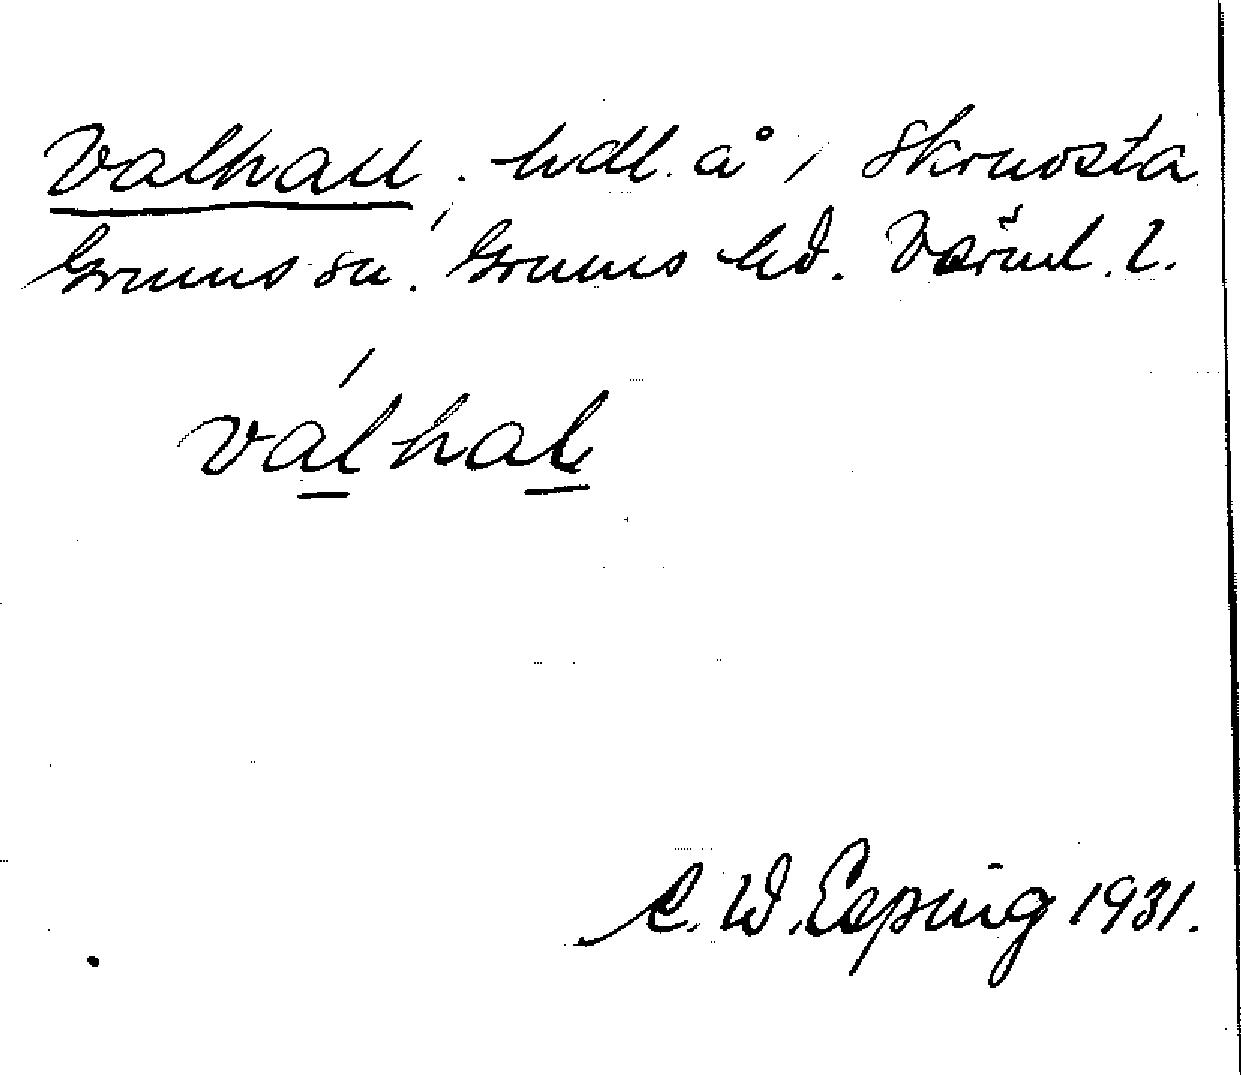 Valhall, hdl. å, Skruvsta
Grums sn. Grums hd. Värml. l.
válhal
C. W. Esping 1931.